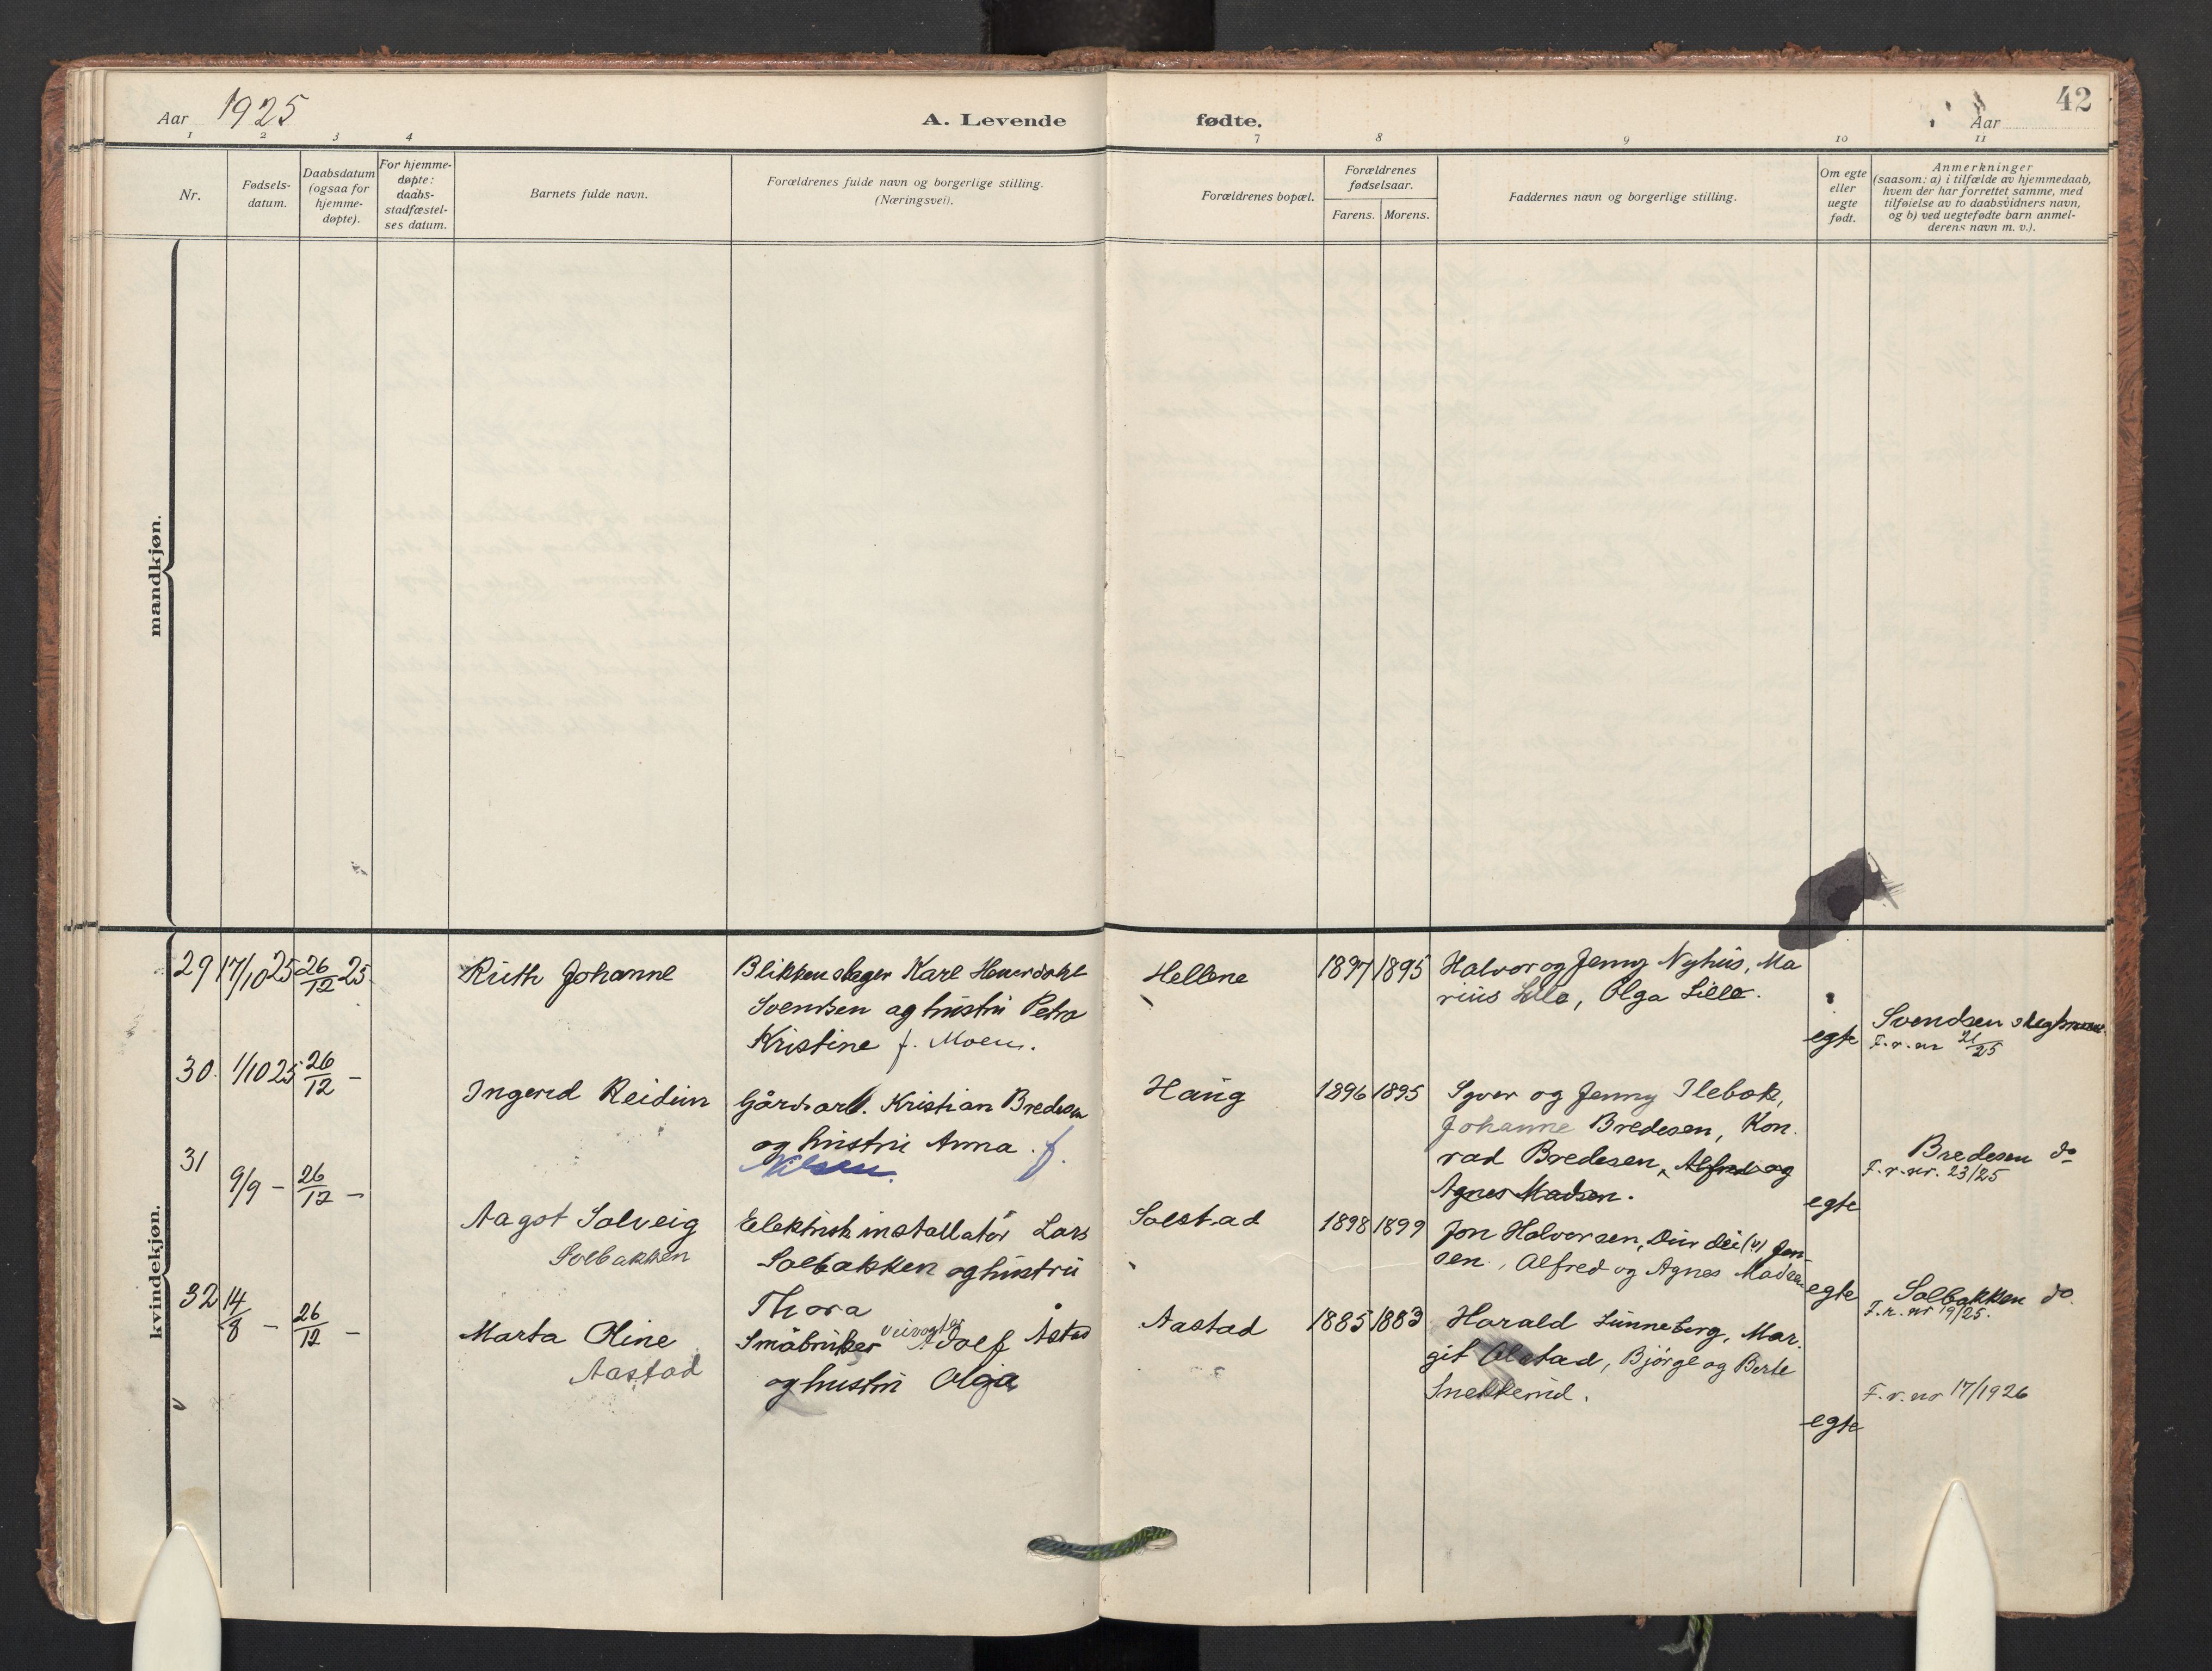 Aar 1925
A. Levende fødte.
42
Aar
1 2 3 4 7 8 9 10 11
Nr.
Fødsels-
datum.
Daabsdatum
(ogsaa for
hjemme-
døpte).
For hjemme-
døpte:
daabs-
stadfæstel-
ses datum.
Barnets fulde navn.
Forældrenes fulde navn og borgerlige stilling.
(Næringsvei).
Forældrenes bopæl.
Forældrenes
fødselsaar.
Farens. Morens.
Faddernes navn og borgerlige stilling.
Om egte
eller
uegte
født.
Anmerkninger
(saasom: a) i tilfælde av hjemmedaab,
hvem der har forrettet samme, med
tilføielse av to daabsvidners navn,
og b) ved uegtefødte barn anmel-
derens navn m. v.).
mandkjøn.
kvindekjøn.
29 17/10 25 26/12 25
Ruth Johanne
Blikkenslager Karl
Svendsen og hustru Petra
Kristine f. Moen.
Hellene
1897 1895
Halvor og Jenny Nyhus, Ma
rius Lille, Olga Lille.
egte
Svendsen
F.r.nr 21/25
30. 1/10 25 26/12 –
Ingerid Reidun
Gårdsarb. Kristian Bredesen
og hustru Anna f.
Nilsen.
Haug
1896 1895
Syver og Jenny Ilebæk,
Johanne Bredesen, Kon.
rad Bredesen, Alfred og
Agnes Madsen.
egte
Bredesen do
F.r.nr. 23/25
31 9/9 – 26/12 –
Aagot Solveig
Solbakken
Elektrisk installatør Lars
Solbakken og hustru
Thora
Solstad
1898 1899
Jon Halvorsen, Jen-
sen, Alfred og Agnes Madsen
egte
Solbakken do.
F.r.nr 19/25.
32 14/8 – 26/12 –
Marta Oline
Aastad
Småbruker veivogter Adolf Åstad
og hustru Olga
Aastad
1885 1883
Harald Lunneberg, Mar.
git Olstad, Bjørge og Berte
Snekkerud.
egte
F.r.nr 17/1926